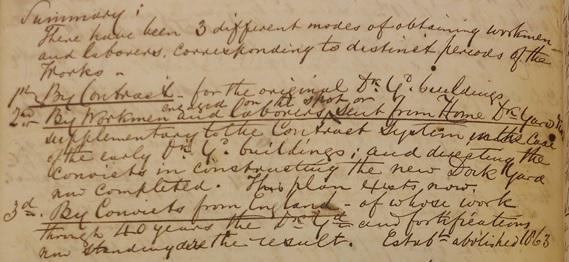 Summary:
There have been 3 different modes of obtaining workmen
and laborers, corresponding to distinct periods of the
Works -
1st By Contract - for the original Dk. Yd. buildings.
engaged on the spot or
2nd By Workmen and laborers, sent from Home Dk Yard
supplementary to the Contract System, in the case
of the early Dk. Yd. buildings; and the
Convicts in constructing the new Dock Yard
now completed. This plan exists, now.
3d. By Convicts from England - of whose work
through 40 years the Dk Yd and fortifications
now standing are the result. Estabt abolished 1863